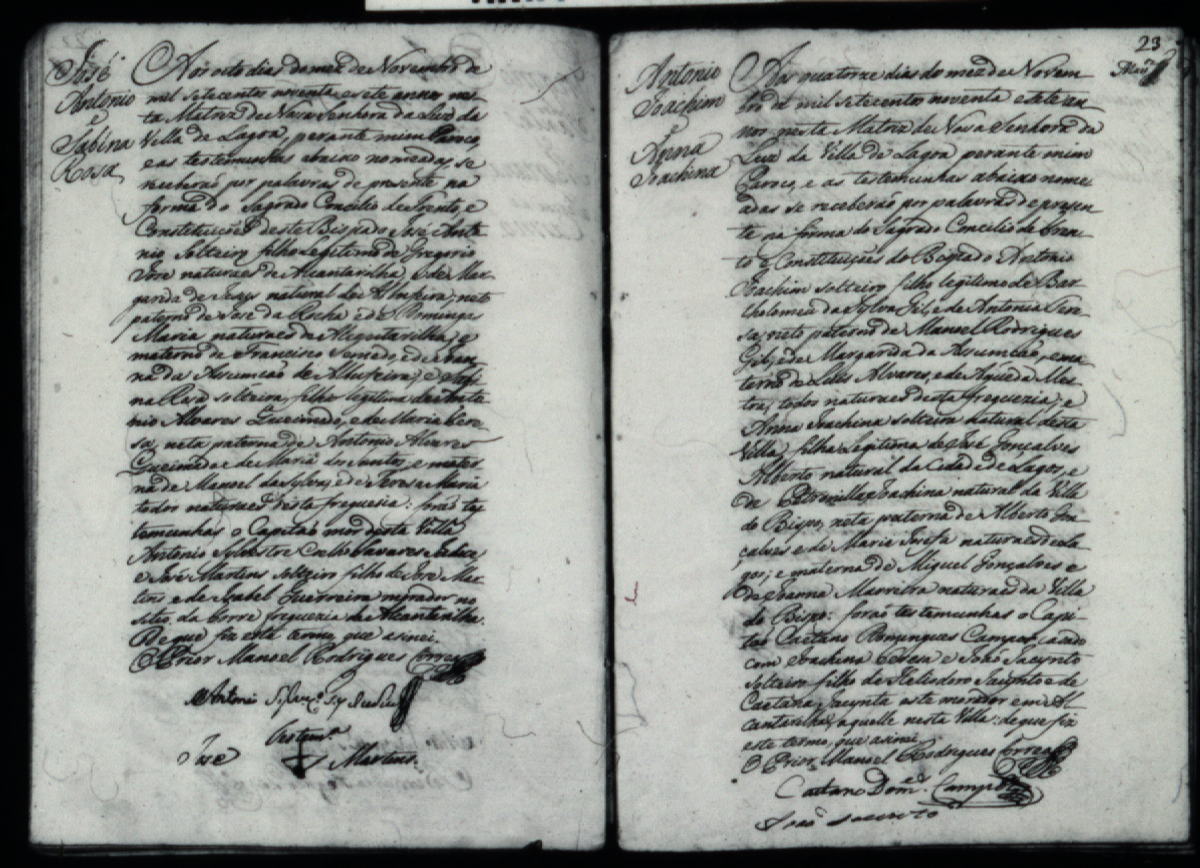 José
Antonio
e
Sabina
Rosa
Aos oito dias do mez de Novembro de
mil setecentos noventa e sete annos nes-
ta Matriz de Nossa Senhora da Luz da
Villa de Lagoa, perante mim Paroco,
e as testemunhas abaixo nomeadas se
receberaõ por palavras de presente na
forma do Sagrado Concilio de Trento, e
Constituiçoẽs deste Bispado José Anto-
nio solteiro filho legitimo de Gregorio
Jose naturaes de Alcantarilha, e de Mar-
garida de Jesus natural de Albufeira; neto
paterno de José da Rocha e de Domingas
Maria, naturaes de Alcantarilha; e
materno de Francisco Semedo, e de Joan-
na da Assumcaõ de Albufeira; e Sabi-
na Rosa solteira, filha legitima de Anto-
nio Alvares Queimado, e de Maria Tere-
sa, neta paterna de Antonio Alvares
Queimado e de Maria dos Santos, e mater-
na de Manoel da Sylva, e de Maria
todos naturaes desta freguesia: foraõ tes-
temunhas o Capitaõ mor desta Villa
Antonio Sylvestre Coelho Tavares
e José Martins solteiro filho de José Mar-
tins e de Isabel Guerreira morador no
sitio da Torre freguezia de Alcantarilha.
De que fiz este termo, que asinei.
O Prior Manoel Rodrigues Correa
Antonio
Testemª
José Martins
23
Antonio
Joachim
e
Anna
Joachina
Aos quatorze dias do mez de Novem-
bro de mil setecentos noventa e sete an-
nos nesta Matriz de Nossa Senhora da
Luz da Villa de Lagoa perante mim
Paroco, e as testemunhas abaixo nome-
adas se receberaõ por palavras de presen-
te na forma do Sagrado Concilio de Tren-
to e Constituiçoẽs do Bispado Antonio
Joachim solteiro filho legitimo de Bar-
tholomeu da Sylva Gil, e de Antonia Tere-
sa; neto paterno de Manuel Rodrigues
Gil, e de Margarida da Assumcaõ, e ma-
terno de Alvares, e de Agueda Mes-
tra; todos naturaes desta freguezia; e
Anna Joachina solteira natural desta
Villa, filha legitima de José Gonçalves
Alberto natural da Cidade de Lagos, e
de Petronilla Joachina natural da Villa
do Bispo, neta paterna de Alberto Gon-
çalves e de Maria Josefa naturaes de La-
gos; e materna de Miguel Gonçalves e
de Joanna Marreira naturaes da Villa
do Bispo: foraõ testemunhas o Capi-
taõ Caetano Domingues Campos, casado
com Joachina Teresa e Joaõ Jacynto
solteiro filho de Heliodoro Jacynto e de
Caetana Jacynta este morador em Al-
cantarilha, aquelle nesta Villa: de que fiz
este termo, que asinei.
O Prior Manoel Rodrigues Correa
Caetano Domes Campos
Joaõ Jacinto